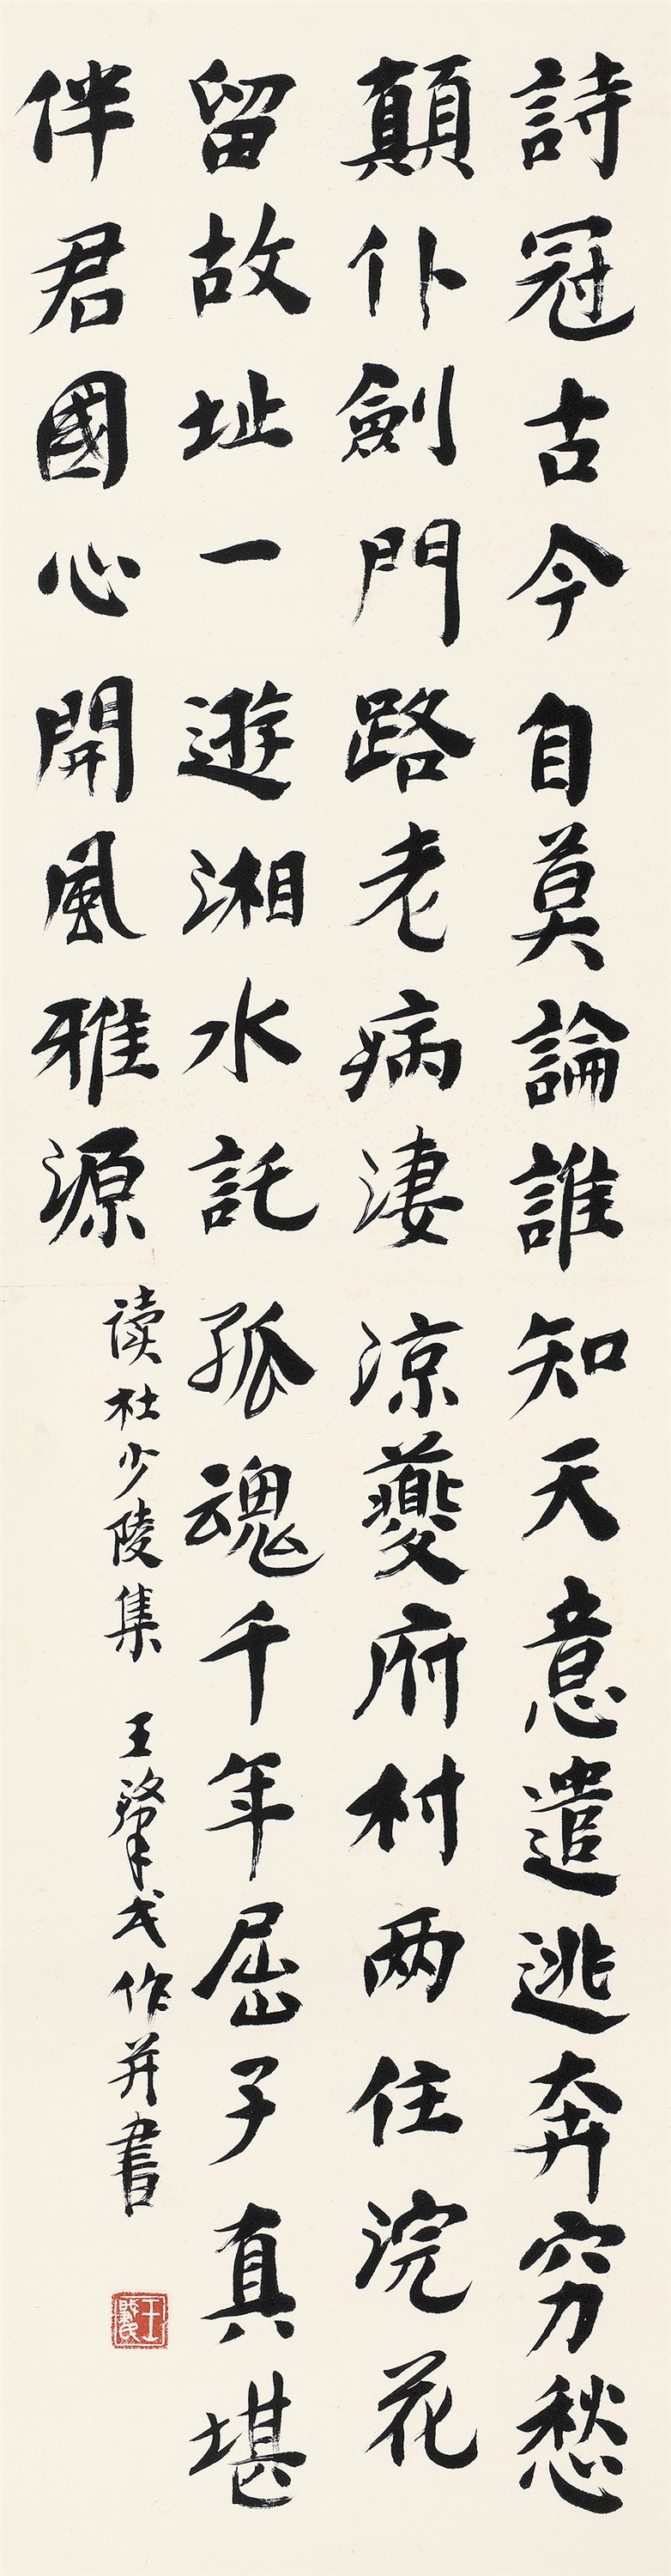 詩冠古今自莫論誰知天意遣逃奔穷愁
顛仆劍門路老病淒涼夔府村两住浣花
留故址一遊湘水託孤魂千年屈子真堪
伴君國心開風雅源
读杜少陵集 王肇民作并書
王肇民